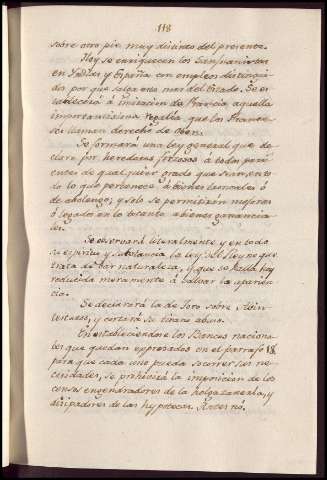 118
sobre otro pie muy distinto del presente.
Hoy se enriquecen los
en Yndias y España con empleos distingui-
dos por que salga otra mas del Estado. Se es-
tablecerá á imitacion de Francia aquella
importantisima regalia que los France-
ses llaman derecho de
Se formará una ley general que de-
clare por herederos forzosos á todos pari-
entes de qualquiera grado que sean en to-
do lo que pertenece á bienes troncales ó
de abolengo; y solo se permitirán mejoras
ó legados en lo restante á bienes gananciá-
les.
Se observará literalmente y en todo
su espiritu y substancia la ley del Reyno que
trata de dar naturaleza, y que se halla hoy
reducida meramente á salvar la aparien-
cia.
Se declarará la de Toro sobre Abin-
testatos, y cortará su tirano abuso.
En estableciendose los Bancos naciona-
les que quedan expresados en el parrafo 18
para que cada uno pueda socorrer sus ne-
cesidades, se prohivirá la imposicion de los
censos engendradores de la holgazaneria, y
disipadores de las hypotecas. Pues nó,